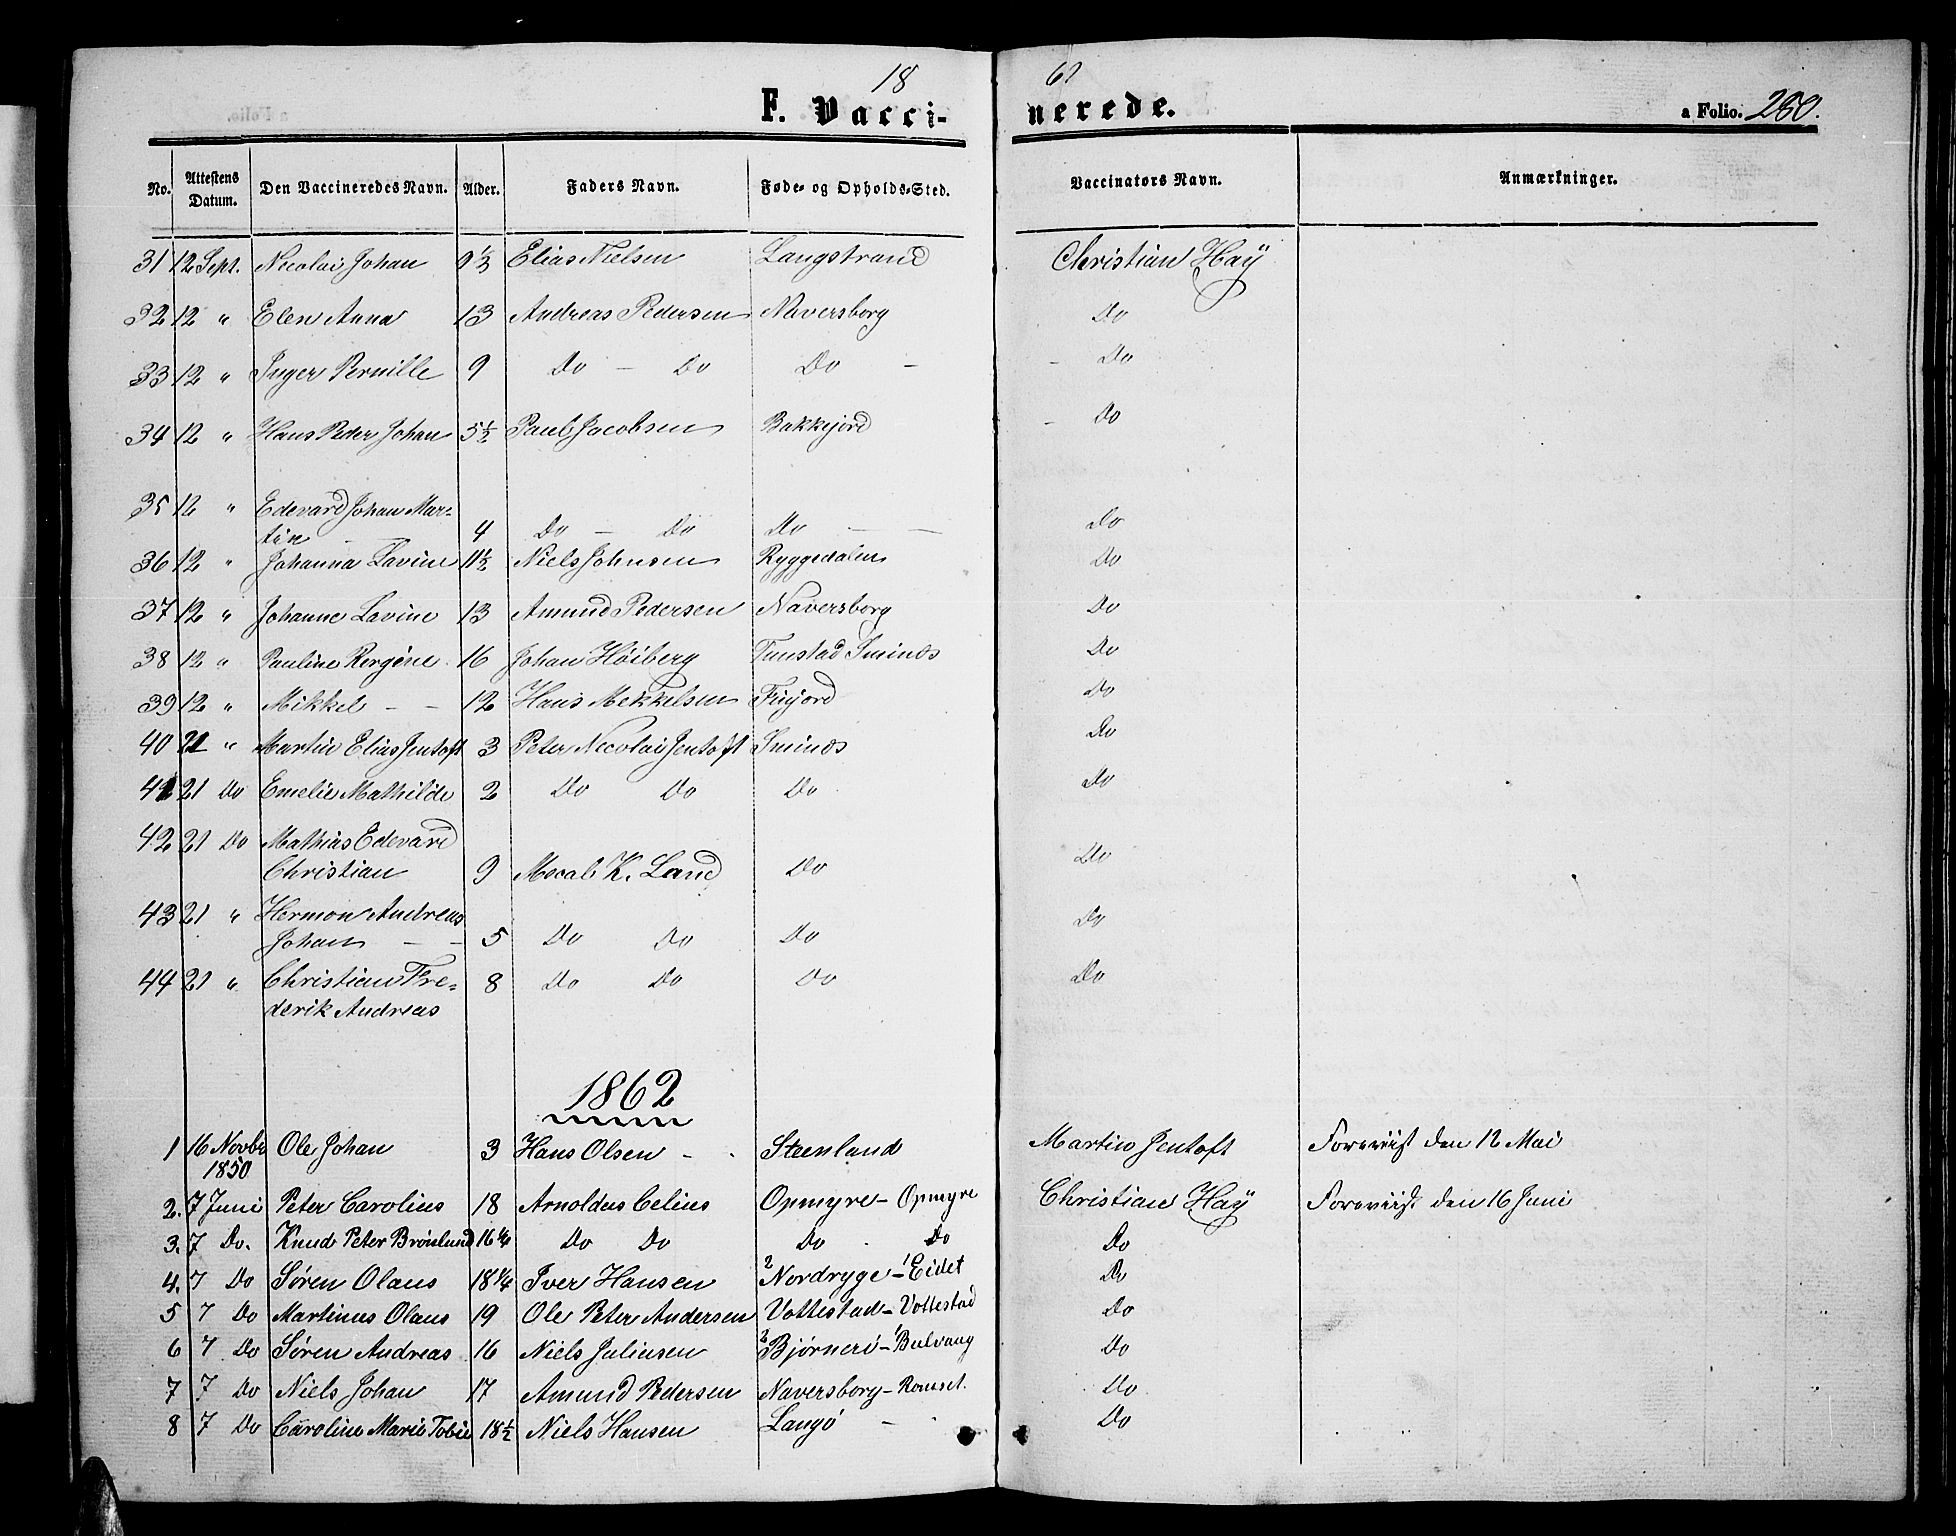 18 61
F. Vacci- nerede. a Folio. 280.
No. Attestens Datum. Den Vaccineredes Navn. Alder. Faders Navn. Føde- og Opholds-Sted. Vaccinators Navn. Anmærkninger.
31 12 Sept. Nicolai Johan 9½ Elias Nielsen Langstrand Christian Hay
32 12 " Elen Anna 13 Andreas Pedersen Naversborg Do
33 12 " Inger Pernille 9 Do - Do Do - - Do
34 12 " Hans Peder Johan 5½ Paul Jacobsen Bakkejord - Do
35 12 " Edevard Johan Mar-
tin - - 4 Do - Do Do - - Do
36 12 " Johanna Lavine 11½ Niels Johnsen Ryggedalen Do
37 12 " Johanne Lavine 13 Amund Pedersen Naversborg Do
38 12 " Pauline 16 Johan Höiberg Tunstad Smines Do
39 12 " Mikkel - - 12 Hans Mekkelsen Do
40 21 " Martin Elias Jentoft 3 Peter Necolai Jentoft Smines Do
41 21 Do Emelie Mathilde 2 Do Do Do Do
42 21 Do Mathias Edevard
Christian 9 K. Land Do Do
43 21 " Hermon Andreas
Johan - - 5 Do Do Do Do
44 21 " Christian Fre-
derik Andreas 8 Do Do Do Do
1862
1 16 Novbr Ole Johan 3 Hans Olsen - - Steenland Martin Jentoft Foreviist den 12 Mai
1850
2. 7 Juni Peter Carolius 18 Arnoldus Celius Opmyre - Opmyre Christian Hay Foreviist den 16 Juni
3. 7 Do. Knud Peter Brönlund 16¼ Do Do Do Do Do
4. 7 Do Søren Olaus 18¼ Iver Hansen 2 Nordryge - 1 Eidet Do
5 7 Do Martinus Olaus 19 Ole Peter Andersen Vottestad - Vottestad Do
6 7 Do Søren Andreas 16 Niels Juliusen 2 Bjørnerö - 1 Bulvang Do
7 7 Do Niels Johan 17 Amund Pedersen Naversborg - Romset. Do
8 7 Do Caroline Marie Tobie 18½ Niels Hansen Langö - Do